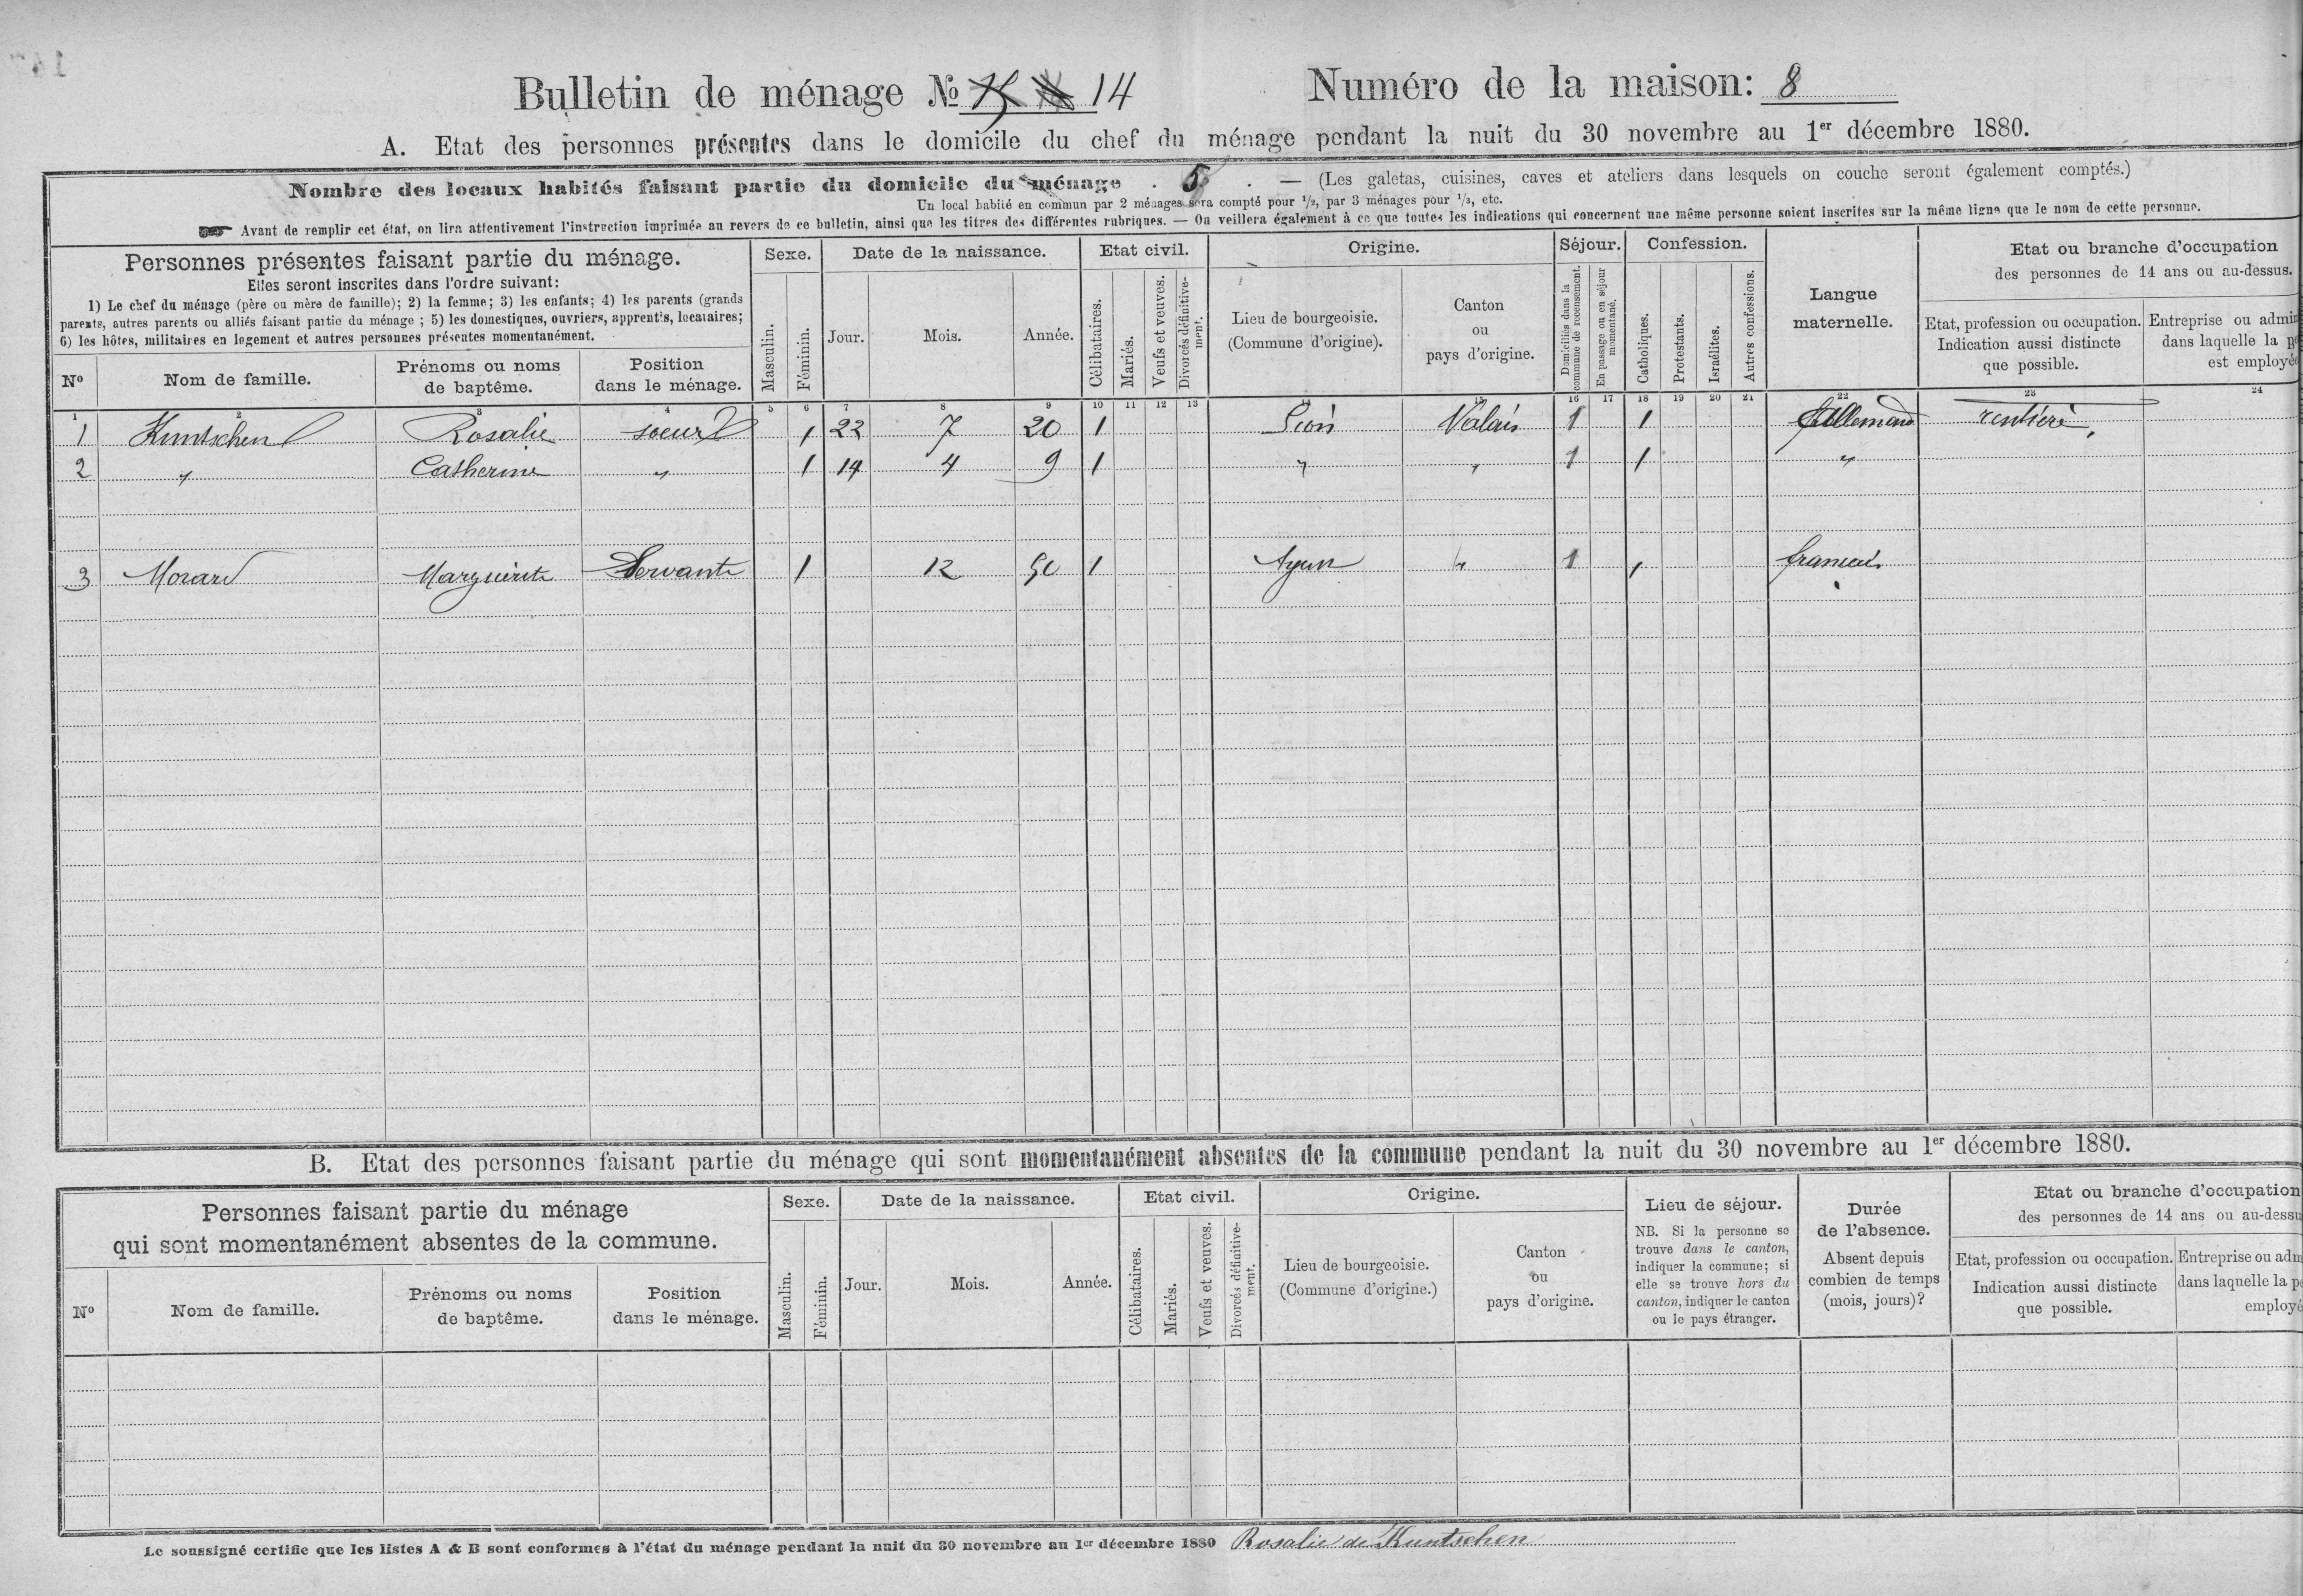 Bulletin de ménage № 14 Numéro de la maison: 8
A. Etat des personnes présentes dans le domicile du chef du ménage pendant la nuit du 30 novembre au 1er décembre 1880.
Nombre des locaux habités faisant partie du domicile du ménage . 5 . — (Les galetas, cuisines, caves et ateliers dans lesquels on couche seront également comptés.)
Un local habité en commun par 2 ménages sera compté pour 1/2, par 3 ménages pour 1/3, etc.
Avant de remplir cet état, on lira attentivement l'instruction imprimée au revers de ce bulletin, ainsi que les titres des différentes rubriques. — On veillera également à ce que toutes les indications qui concernent une même personne soient inscrites sur la même ligne que le nom de cette personne.
Personnes présentes faisant partie du ménage.
Elles seront inscrites dans l'ordre suivant:
1) Le chef du ménage (père ou mère de famille); 2) la femme; 3) les enfants; 4) les parents (grands
parents, autres parents ou alliés faisant partie du ménage ; 5) les domestiques, ouvriers, apprentis, locataires;
6) les hôtes, militaires en logement et autres personnes présentes momentanément.
Nº Nom de famille. Prénoms ou noms de baptême. Position dans le ménage.
Sexe. Masculin. Féminin.
Date de la naissance. Jour. Mois. Année.
Etat civil. Célibataires. Mariés. Veufs et veuves. Divorcés définitive-ment.
Origine. Lieu de bourgeoisie. (Commune d'origine). Canton ou pays d'origine.
Séjour. Domiciliés dans la commune de recensement. En passage ou en séjour momentané.
Confession. Catholiques. Protestants. Israélites. Autres confessions.
Langue maternelle.
Etat ou branche d'occupation
des personnes de 14 ans ou au-dessus.
Etat, profession ou occupation. Indication aussi distincte que possible.
Entreprise ou admin
dans laquelle la pe
est employée
1 2 3 4 5 6 7 8 9 10 11 12 13 14 15 16 17 18 19 20 21 22 23 24
1 Kuntschen Rosalie soeur 1 22 7 20 1 Sion Valais 1 1 Allemand rentière
2 " Catherine " 1 14 4 9 1 " " 1 1 "
3 Morard Marguerite Servante 1 12 50 1 Ayent " 1 1 français
B. Etat des personnes faisant partie du ménage qui sont momentanément absentes de la commune pendant la nuit du 30 novembre au 1er décembre 1880.
Personnes faisant partie du ménage
qui sont momentanément absentes de la commune.
Nº Nom de famille. Prénoms ou noms de baptême. Position dans le ménage.
Sexe. Masculin. Féminin.
Date de la naissance. Jour. Mois. Année.
Etat civil. Célibataires. Mariés. Veufs et veuves. Divorcés définitive-ment.
Origine. Lieu de bourgeoisie. (Commune d'origine.) Canton ou pays d'origine.
Lieu de séjour.
NB. Si la personne se
trouve dans le canton,
indiquer la commune; si
elle se trouve hors du
canton, indiquer le canton
ou le pays étranger.
Durée
de l'absence.
Absent depuis
combien de temps
(mois, jours)?
Etat ou branche d'occupation
des personnes de 14 ans ou au-dessu
Etat, profession ou occupation. Indication aussi distincte que possible.
Entreprise ou adm
dans laquelle la pe
employé
Le soussigné certifie que les listes A & B sont conformes à l'état du ménage pendant la nuit du 30 novembre au 1er décembre 1880 Rosalie de Kuntschen